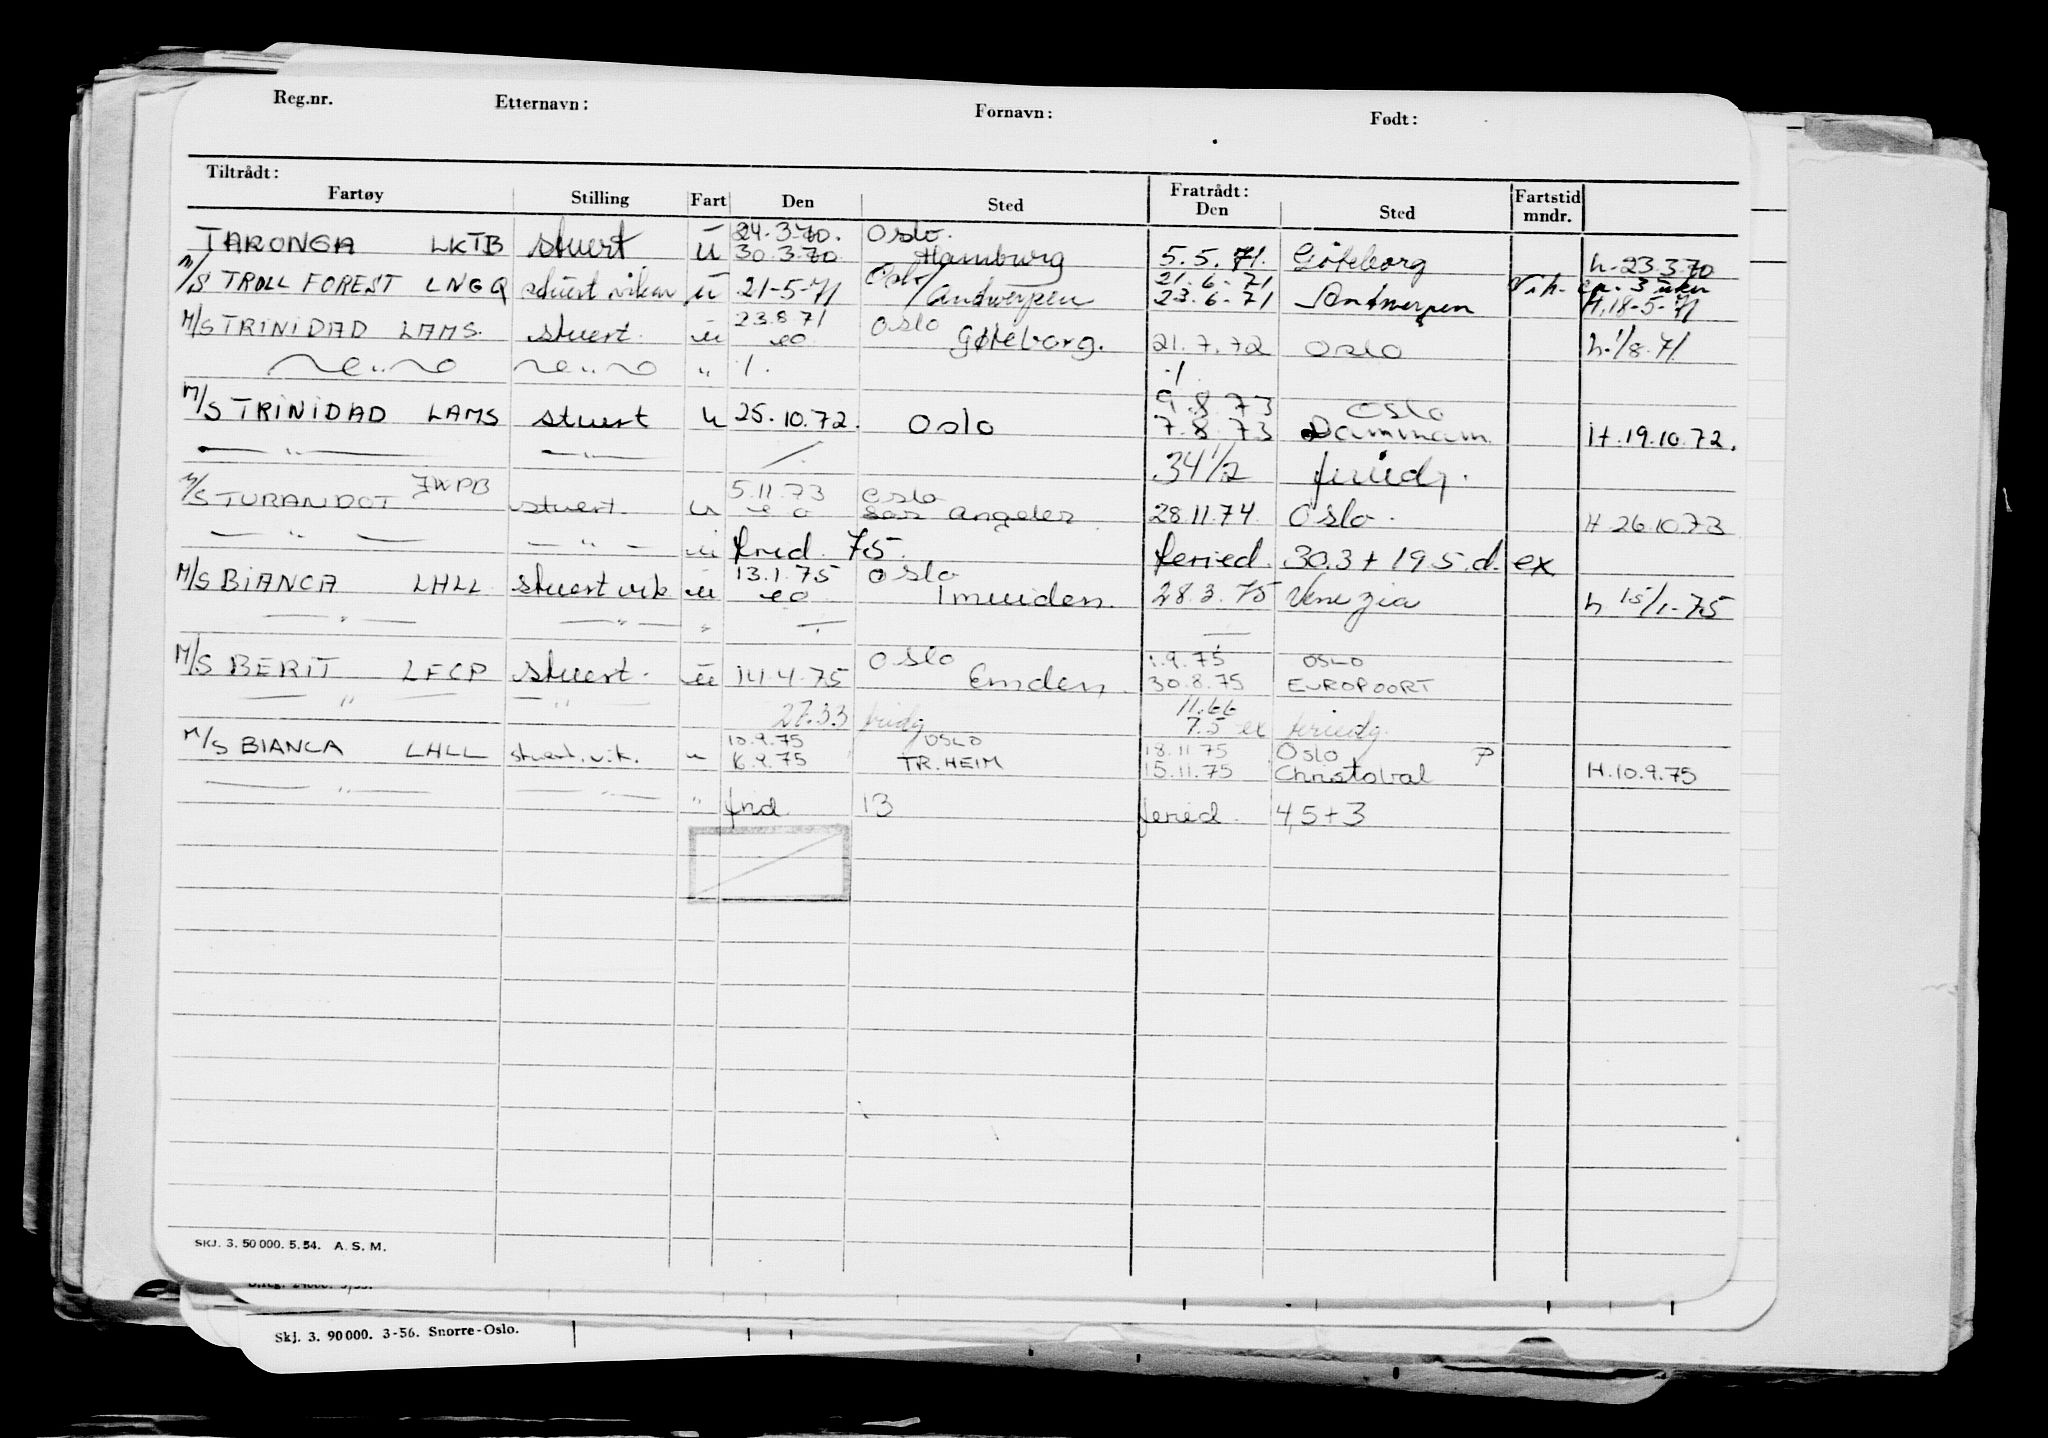 Reg.nr. Etternavn: Fornavn: Født:
Tiltrådt: Fratrådt: Fartstid
Fartøy Stilling Fart Den Sted Den Sted mndr.
TARONGA LKTB stuert u 24.3.70. Oslo.
30.3.70 Hamburg 5.5.71. Göteborg h. 23.3.70
M/S TROLL FOREST LNGQ stuert vikar u 21-5-71 Oslo/Antwerpen 21.6.71 Vik. ca. 3 uker
23.6.71 Antwerpen H. 18-5-71
M/S TRINIDAD LAMS. stuert. u 23.8.71 Oslo
eo Gøteborg. 21.7.72 Oslo h. 1/8.71
" " " 1. 1.
M/S TRINIDAD LAMS stuert u 25.10.72. Oslo 9.8.73 Oslo
7.8.73 Dammam H. 19.10.72.
— " — — " — / 34 1/2
M/S TURANDOT JWPB stuert. u 5.11.73 Oslo
eo Los Angeles 28.11.74 Oslo. H 26.10.73
— " — — " — u frid. 75. feried. 30.3 + 19.5.d. ex
M/S BIANCA LHLL stuert vik u 13.1.75 Oslo
eo Imuiden. 28.3.75 Venezia h 15/1-75
— " — — " — "
M/S BERIT LFCP stuert. u 14.4.75 Oslo Emden. 1.9.75 OSLO
30.8.75 EUROPOORT
— " — — " —
27.33 fridg 11.66
7.5 ex feriedg.
M/S BIANCA LHLL stuert. vik. u 10.9.75 OSLO 18.11.75 Oslo P
16.9.75 TR.HEIM 15.11.75 Christobal H. 10.9.75
— " — — " — " frid. 13 feried. 4,5+3
SKJ. 3. 50 000. 5.54. A. S. M.
Skj. 3. 90 000. 3-56. Snorre-Oslo.